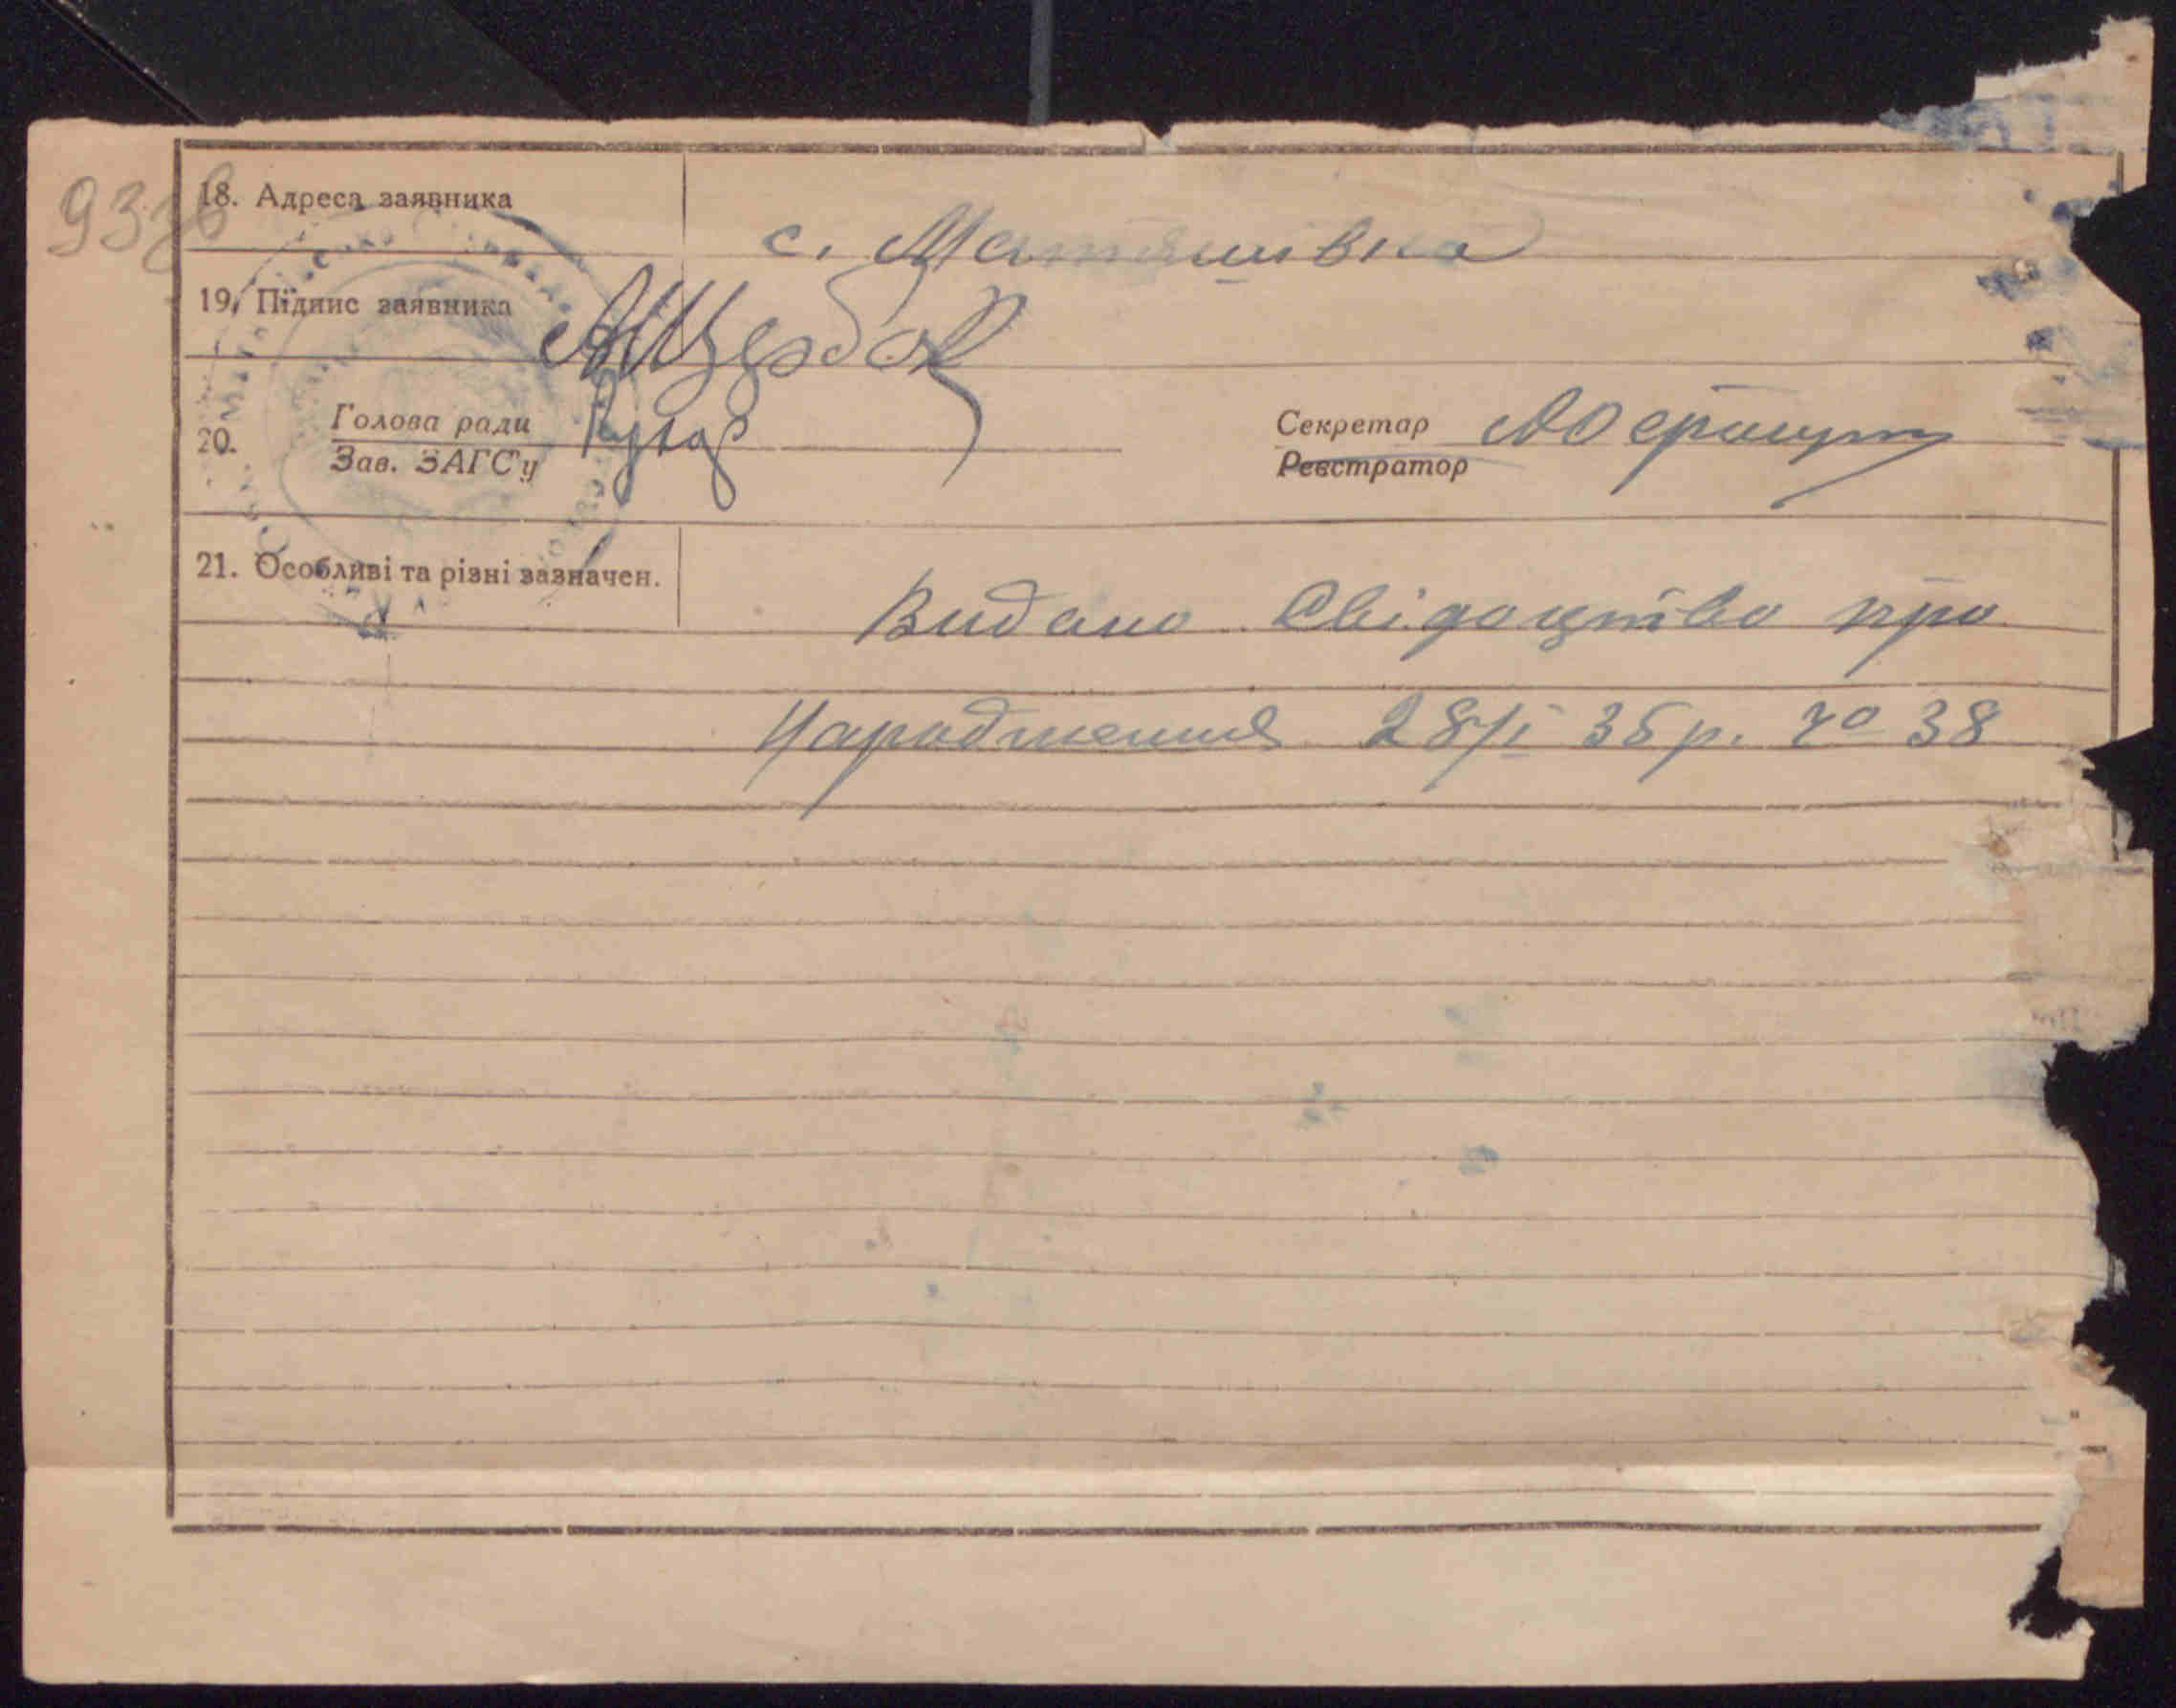 93зв
18. Адреса заявника
с. Маташивка
19. Підпис заявника
АЩербак
20.
Голова ради
Зав. ЗАГС'у
Секретар
Реєстратор
21. Особливі та різні зазначен.
Видано Свідоцтво про
Народження 28/I 35 р. № 38